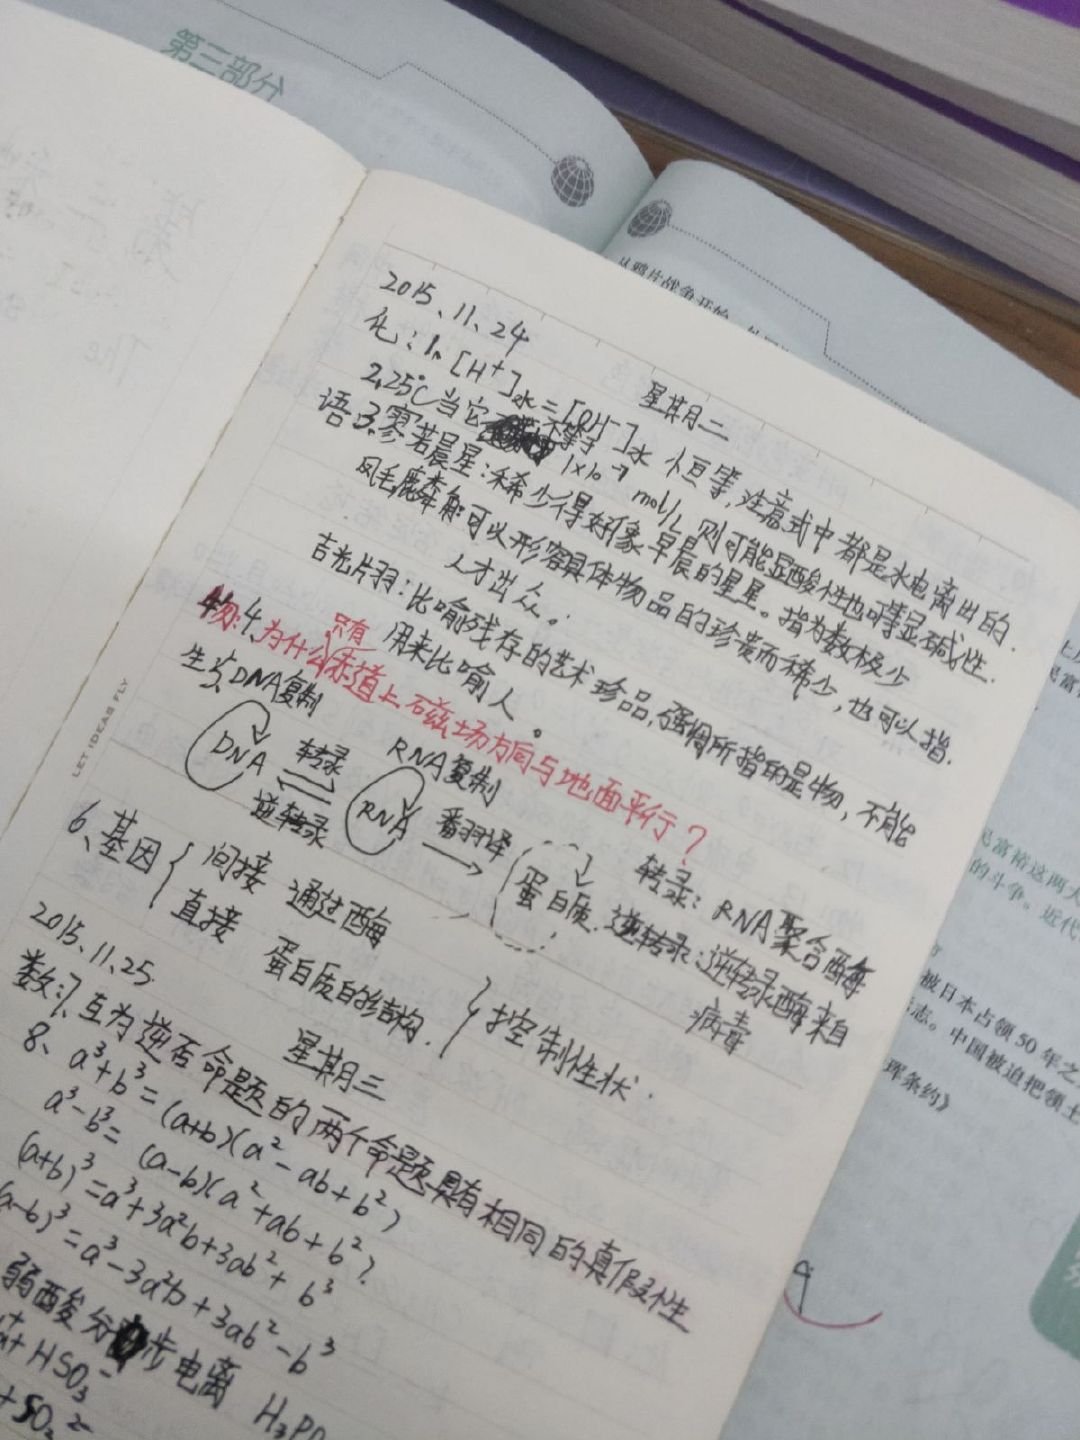 第三部分
从鸦片战争开始
2015、11、24 星期二
化：1、[H⁺]水=[OH⁻]水 恒等，注意式中都是水电离出的．
2、25℃当它不等于1×10⁻⁷ mol/L 则可能显酸性也可能显碱性．
语：3、寥若晨星：稀少得好像早晨的星星。指为数极少
凤毛麟角：可以形容具体物品的珍贵而稀少，也可以指．
人才出众。
吉光片羽：比喻残存的艺术珍品，强调所指的是物，不能
用来比喻人。
物：4、为什么只有赤道上磁场方向与地面平行？
生：5、DNA复制
RNA复制
DNA 转录 逆转录 RNA 翻译 蛋白质．
转录：RNA聚合酶
逆转录：逆转录酶来自
病毒
6、基因 { 间接 通过酶
直接 蛋白质的结构． } 控制性状．
2015、11、25 星期三
数：7、互为逆否命题的两个命题具有相同的真假性
8、a³+b³=(a+b)(a²-ab+b²)
a³-b³=(a-b)(a²+ab+b²)
(a+b)³=a³+3a²b+3ab²+b³
(a-b)³=a³-3a²b+3ab²-b³
弱酸分步电离
HSO₃⁻
LET IDEAS FLY
民富裕这两大
的斗争。近代
被日本占领50年之
志。中国被迫把领土
珲条约》